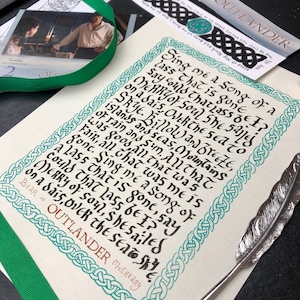 OUTLANDER
Sing me a song of a
lass that is gone
Say could that lass be I?
Merry of soul she sailed
on a day. Over the sea to
Skye. Billow and breeze
islands and seas, Mountains
of rain and sun. All that
was good all that was
fair, all that was me is
gone. Sing me a song of
a lass that is gone. Say
could that lass be I?
Merry of soul, she sailed
on a day over the sea to Sky
OUTLANDER McCreary